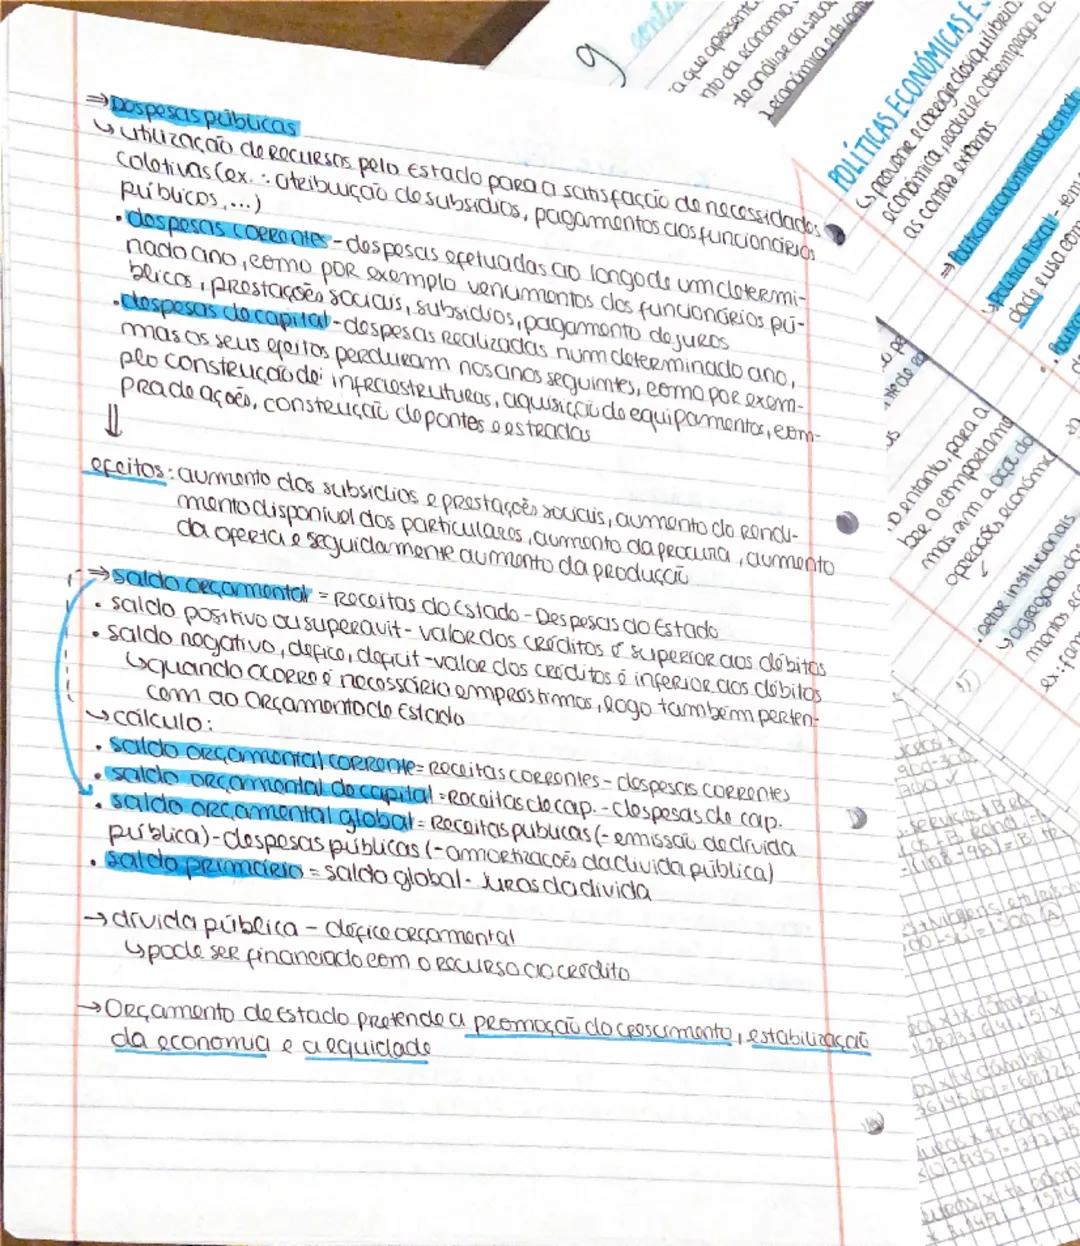 ⇒ Despesas públicas
↳ utilização de recursos pelo Estado para a satisfação de necessidades
coletivas (ex.: atribuição de subsídios, pagamentos dos funcionários
públicos, ...)
• despesas correntes - despesas efetuadas ao longo de um determi-
nado ano, como por exemplo vencimentos dos funcionários pú-
blicos, prestações sociais, subsídios, pagamento de juros
• despesas de capital - despesas realizadas num determinado ano,
mas os seus efeitos perduram nos anos seguintes, como por exem-
plo construção de infraestruturas, aquisição de equipamentos, com-
pra de ações, construção de pontes e estradas
⇓
efeitos: aumento dos subsídios e prestações sociais, aumento do rendi-
mento disponível dos particulares, aumento da procura, aumento
da oferta e seguidamente aumento da produção
⇒ saldo orçamental = Receitas do Estado - Despesas do Estado
• saldo positivo ou superavit - valor dos créditos é superior aos débitos
• saldo negativo, défice, deficit - valor dos créditos é inferior aos débitos
↳ quando ocorre é necessário empréstimos, logo também perten-
cem ao Orçamento do Estado
↳ cálculo:
• saldo orçamental corrente = Receitas correntes - despesas correntes
• saldo orçamental de capital = Receitas de cap. - despesas de cap.
• saldo orçamental global = Receitas públicas (- emissão de dívida
pública) - despesas públicas (- amortizações da dívida pública)
• saldo primário = saldo global - juros da dívida
→ dívida pública - défice orçamental
↳ pode ser financiado com o recurso ao crédito
→ Orçamento de Estado pretende a promoção do crescimento, estabilização
da economia e a equidade
9
ca que apresenta
nto da economia
de análise da situa
económica e
POLÍTICAS ECONÓMICAS E
↳ prevenir e corrigir desiquilíbrio
económica, reduzir o desemprego e a
as contas externas
⇒ Políticas económicas do Estado
↳ Política fiscal - tem
dade e uso com
• O entanto, para a
ber o comportame
mas sim a ação do
operações económ
• Setor institucionais
↳ agregado do
mentos ec